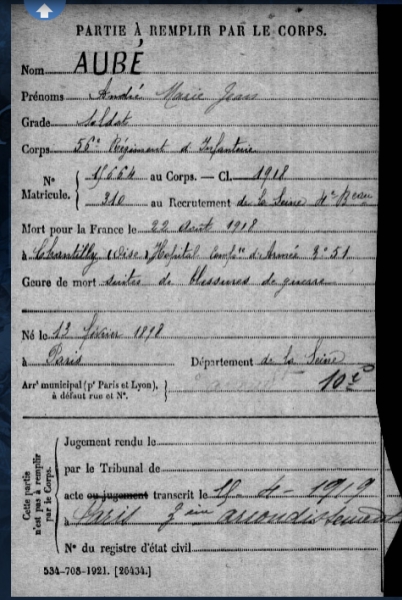 PARTIE À REMPLIR PAR LE CORPS.
Nom AUBÉ
Prénoms André Marie Jean
Grade Soldat
Corps 56e Régiment d'Infanterie
Nº 15664 au Corps. — Cl. 1918
Matricule. 310 au Recrutement de la Seine 4e Beau
Mort pour la France le 22 Août 1918
à Chantilly (Oise) Hôpital d'Armée 2º 51
Genre de mort suites de blessures de guerre
Né le 13 février 1898
à Paris Département de la Seine
Arrt municipal (pr Paris et Lyon), à défaut rue et Nº. 10e
Cette partie n'est pas à remplir par le Corps.
Jugement rendu le
par le Tribunal de
acte ou jugement transcrit le 19-4-1919
à Paris 3ème arrondissement
Nº du registre d'état civil
534-708-1921. [26434.]